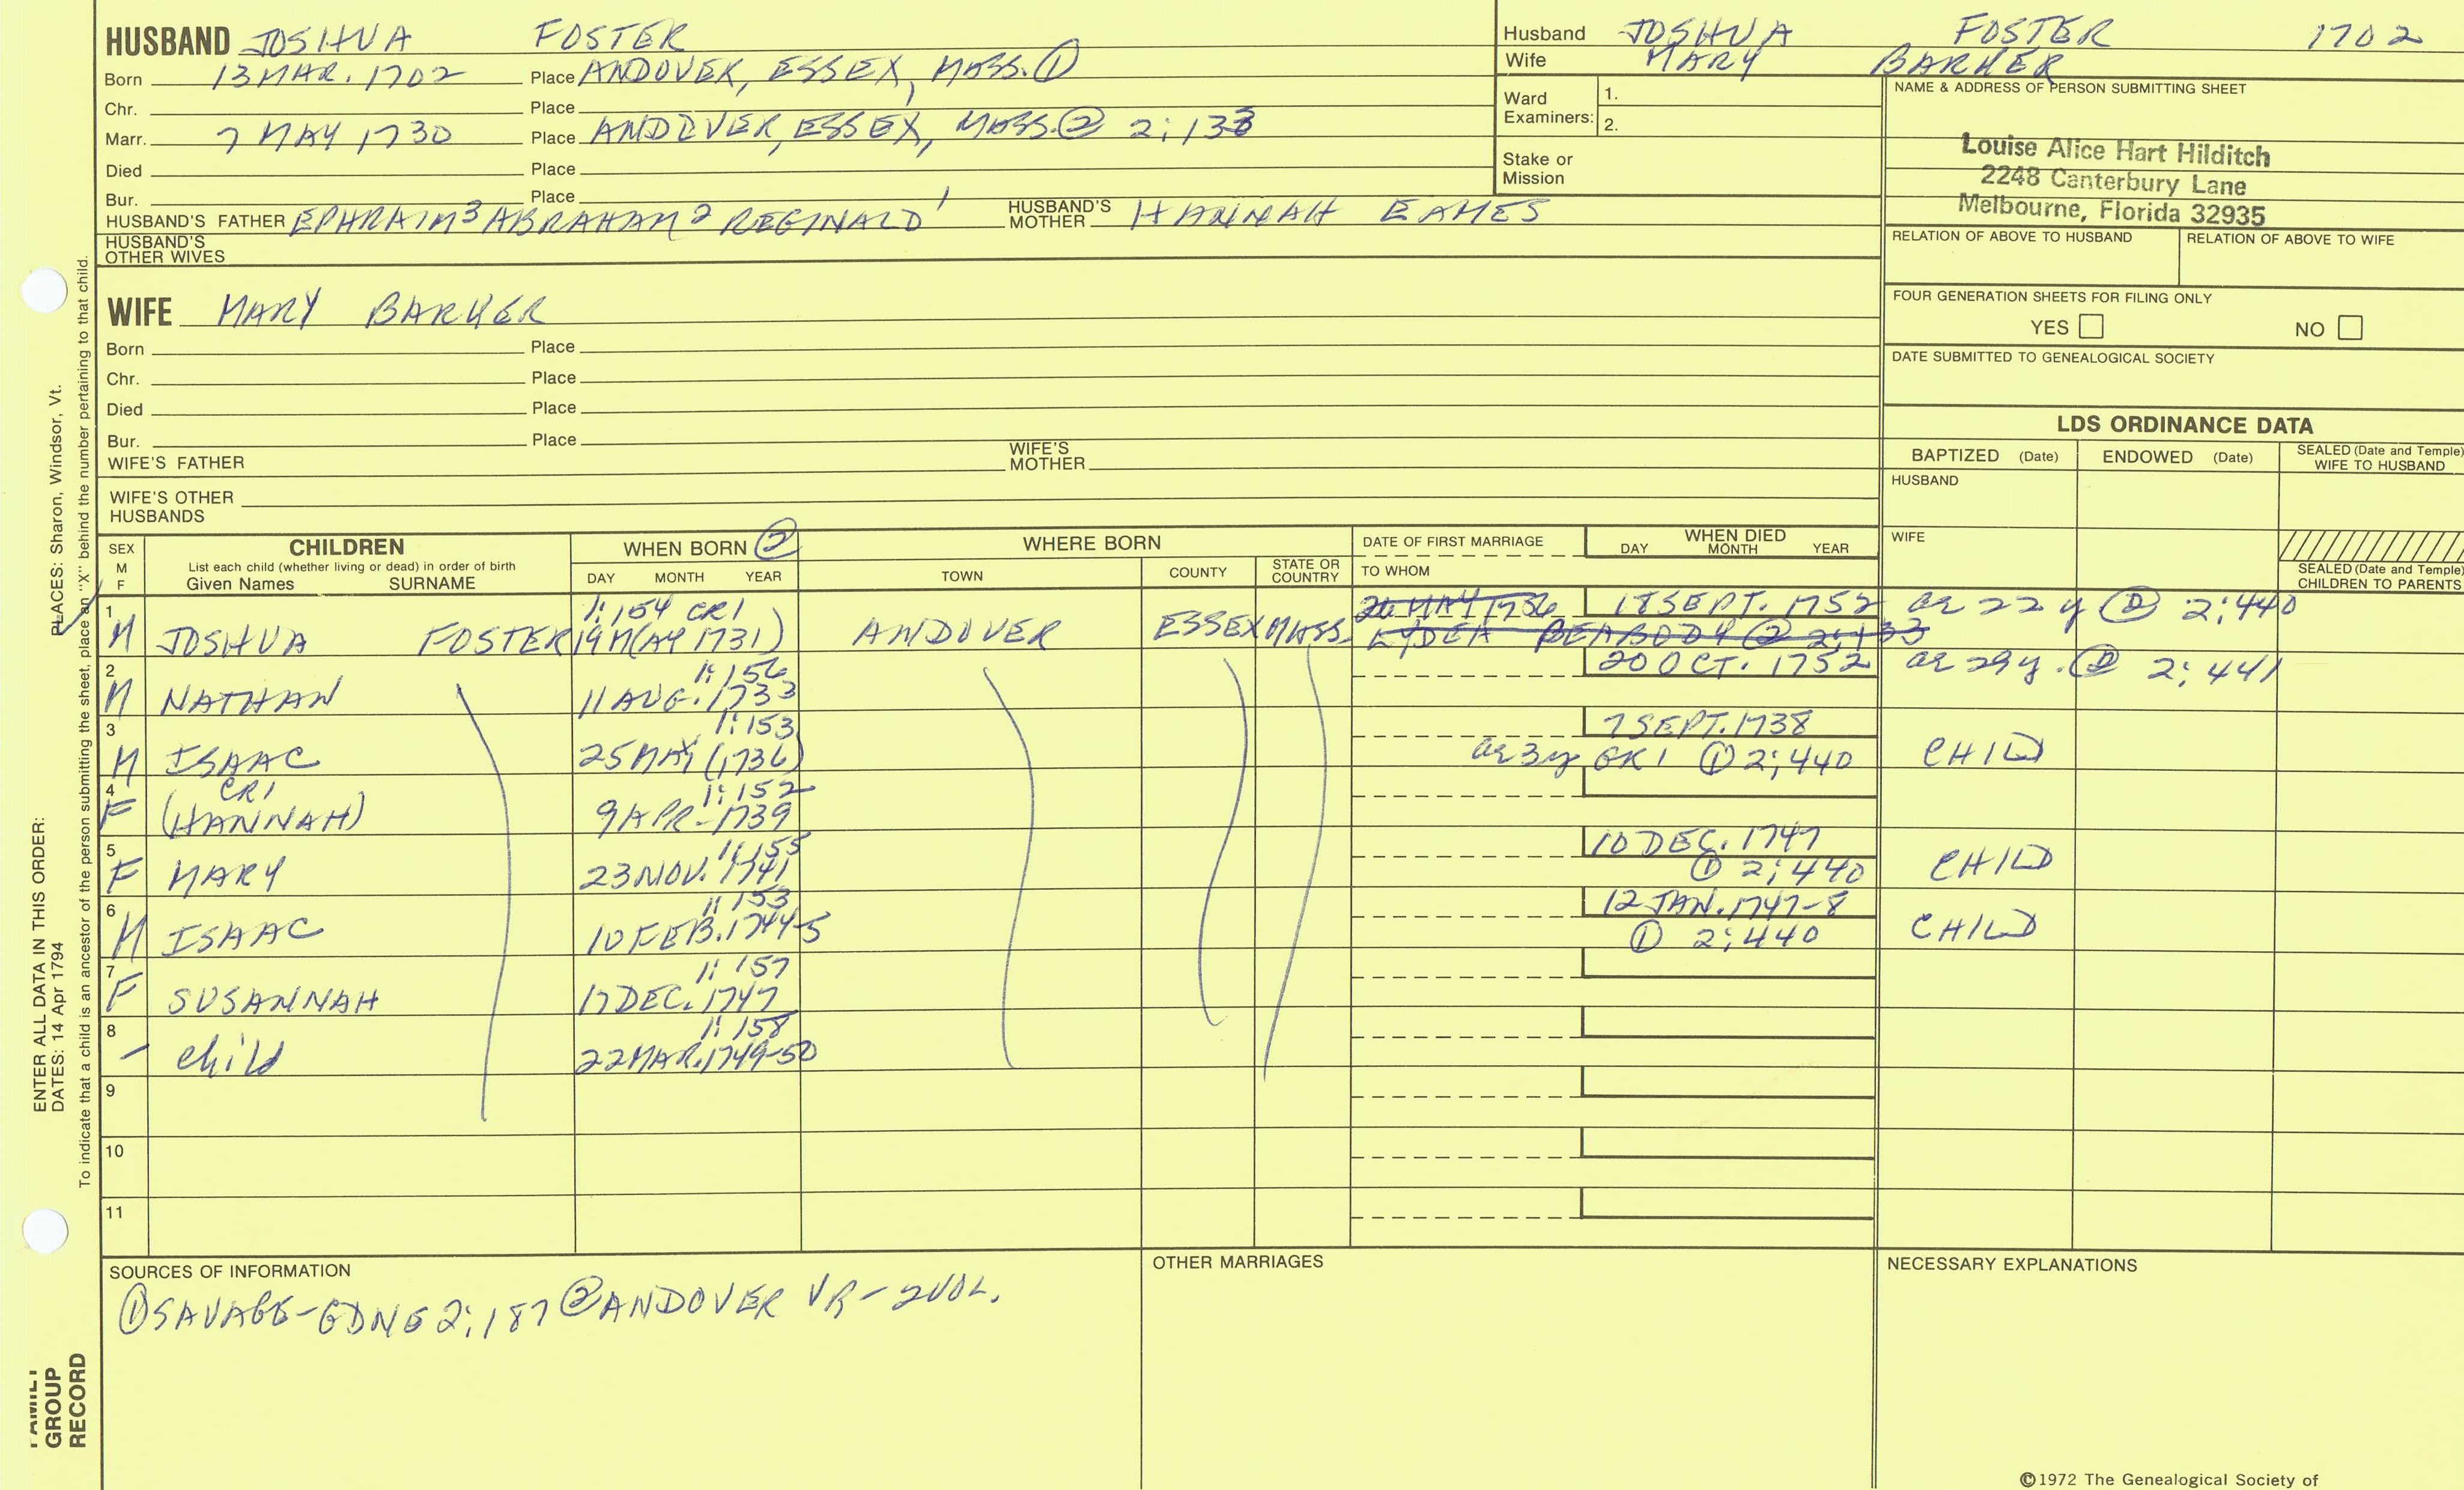 HUSBAND JOSHUA FOSTER
Born 13 MAR. 1702 Place ANDOVER, ESSEX, MASS. ①
Chr. Place
Marr. 7 MAY 1730 Place ANDOVER, ESSEX, MASS. ② 2:133
Died Place
Bur. Place
HUSBAND'S FATHER EPHRAIM³ ABRAHAM² REGINALD¹ HUSBAND'S MOTHER HANNAH EAMES
HUSBAND'S OTHER WIVES
Husband JOSHUA FOSTER 1702
Wife MARY BARKER
Ward Examiners: 1.
2.
Stake or Mission
NAME & ADDRESS OF PERSON SUBMITTING SHEET
Louise Alice Hart Hilditch
2248 Canterbury Lane
Melbourne, Florida 32935
RELATION OF ABOVE TO HUSBAND RELATION OF ABOVE TO WIFE
FOUR GENERATION SHEETS FOR FILING ONLY
YES NO
DATE SUBMITTED TO GENEALOGICAL SOCIETY
WIFE MARY BARKER
Born Place
Chr. Place
Died Place
Bur. Place
WIFE'S FATHER WIFE'S MOTHER
WIFE'S OTHER HUSBANDS
LDS ORDINANCE DATA
BAPTIZED (Date) ENDOWED (Date) SEALED (Date and Temple) WIFE TO HUSBAND
HUSBAND
WIFE
SEALED (Date and Temple) CHILDREN TO PARENTS
SEX M F
CHILDREN
List each child (whether living or dead) in order of birth
Given Names SURNAME
WHEN BORN ②
DAY MONTH YEAR
WHERE BORN
TOWN COUNTY STATE OR COUNTRY
DATE OF FIRST MARRIAGE
TO WHOM
WHEN DIED
DAY MONTH YEAR
1 1:154 CR1 26 MAY 1756 18 SEPT. 1752 ae 22 y ② 2:440
M JOSHUA FOSTER 19 M(AY 1731) ANDOVER ESSEX MASS. LYDEA PEABODY ② 2:133
2 1:156 20 OCT. 1752 ae 29 y. ② 2:441
M NATHAN 11 AUG. 1733
3 1:153 7 SEPT. 1738
M ISAAC 25 MAY (1736) ae 3y GR1 ① 2:440 CHILD
4 CR1 1:152
F (HANNAH) 9 APR. 1739
5 1:155 10 DEC. 1747
F MARY 23 NOV. 1741 ① 2:440 CHILD
6 1:153 12 JAN. 1747-8
M ISAAC 10 FEB. 1744-5 ① 2:440 CHILD
7 1:157
F SUSANNAH 17 DEC. 1747
8 1:158
- child 22 MAR. 1749-50
9
10
11
SOURCES OF INFORMATION
① SAVAGE-GDNE 2:187 ② ANDOVER VR - 2 VOL.
OTHER MARRIAGES
NECESSARY EXPLANATIONS
©1972 The Genealogical Society of
ENTER ALL DATA IN THIS ORDER:
DATES: 14 Apr 1794 PLACES: Sharon, Windsor, Vt.
To indicate that a child is an ancestor of the person submitting the sheet, place an "X" behind the number pertaining to that child.
FAMILY
GROUP
RECORD